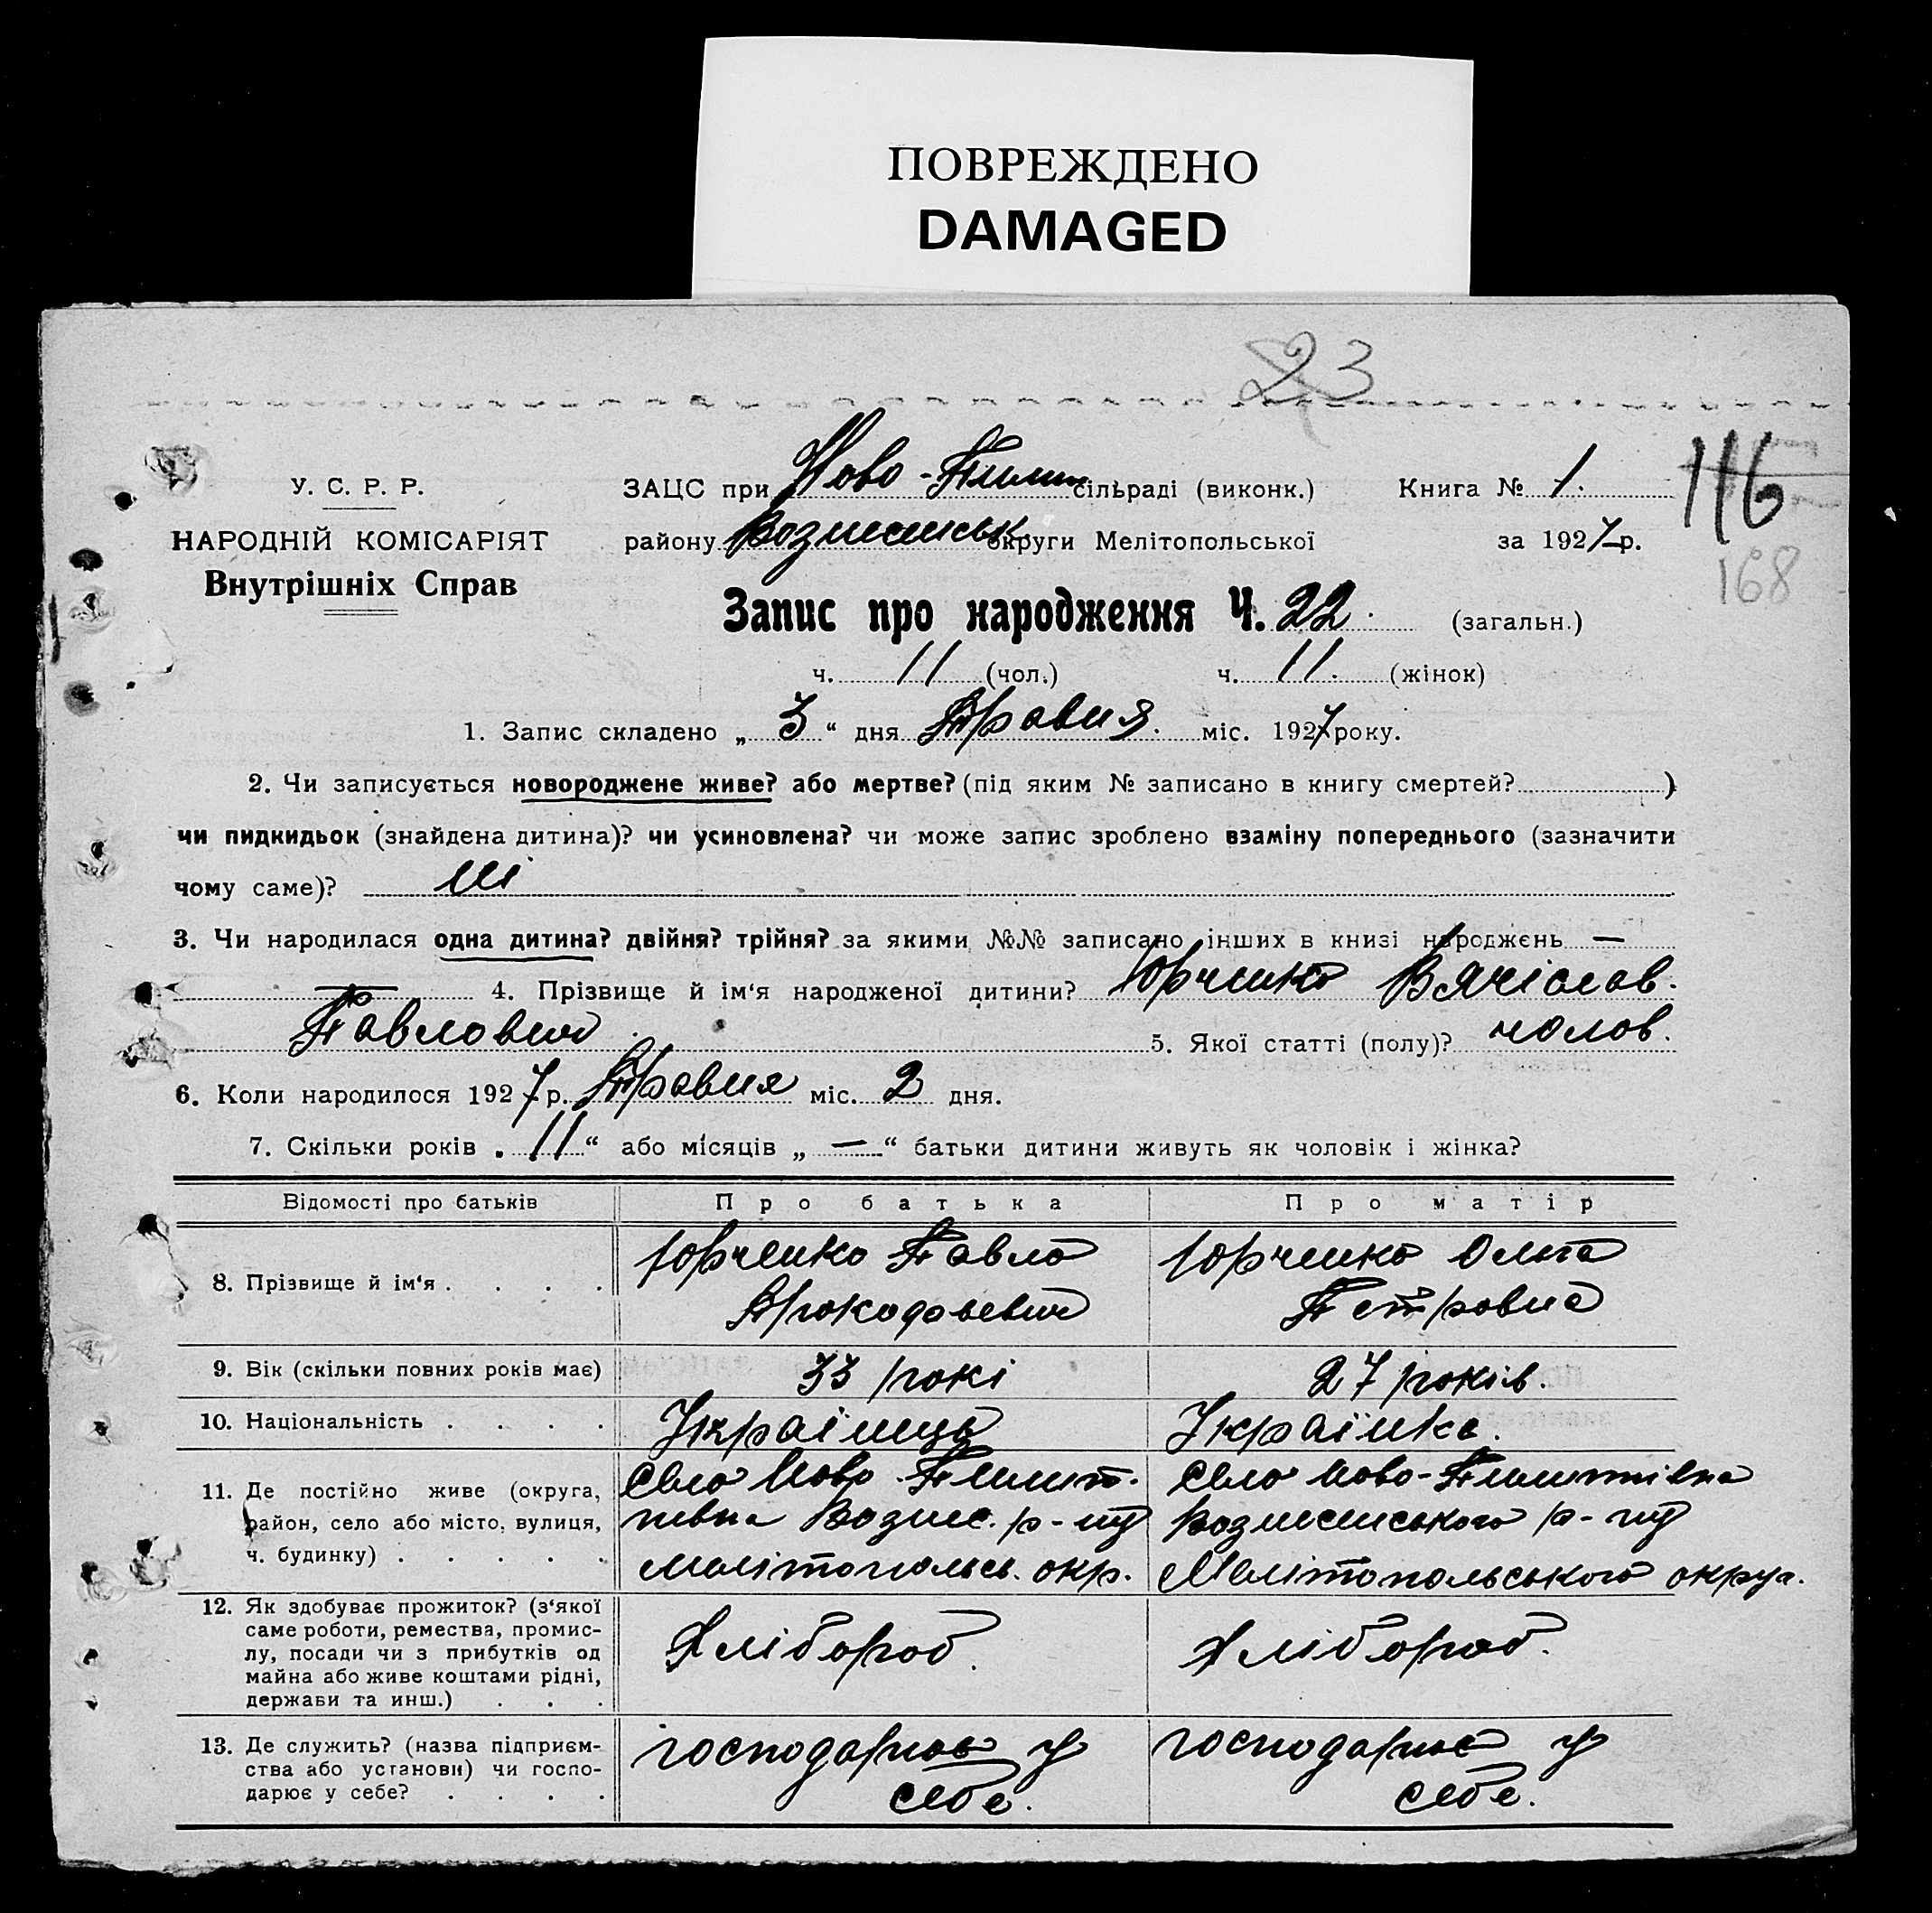 ПОВРЕЖДЕНО
DAMAGED
23
116
168
У. С. Р. Р.
НАРОДНІЙ КОМІСАРІЯТ
Внутрішніх Справ
ЗАЦС при Ново-Пилип сільраді (виконк.) Книга № 1.
району Вознесенськ округи Мелітопольської за 1927 р.
Запис про народження Ч. 22. (загальн.)
ч. 11 (чол.) ч. 11. (жінок)
1. Запис складено „ 3 “ дня Травня. міс. 1927 року.
2. Чи записується новороджене живе? або мертве? (під яким № записано в книгу смертей? )
чи пидкидьок (знайдена дитина)? чи усиновлена? чи може запис зроблено взаміну попереднього (зазначити
чому саме)? ні
3. Чи народилася одна дитина? двійня? трійня? за якими №№ записано інших в книзі народжень —
— 4. Прізвище й ім‘я народженої дитини? Юрченко Вячіслав.
Павлович 5. Якої статті (полу)? чолов.
6. Коли народилося 1927 р. Травня міс. 2 дня.
7. Скільки років „ 11 “ або місяців „ — “ батьки дитини живуть як чоловік і жінка?
Відомості про батьків Про батька Про матір
8. Прізвище й ім‘я . . . . Юрченко Павло Юрченко Ольга
Петровна
9. Вік (скільки повних років має) 33 рокі 27 років.
10. Національність . . . . Українець Українка.
11. Де постійно живе (округа, Село Ново Пилип. Село Ново-Пилипівка
район, село або місто, вулиця, півка Вознес. р-ну Вознесенського р-ну
ч. будинку) . . . . . Мелітопольсь. окр. Мелітопольського округа.
12. Як здобуває прожиток? (з‘якої
саме роботи, ремества, промис-
лу, посади чи з прибутків од Хлібороб. Хлібороб.
майна або живе коштами рідні,
держави та инш.) . . .
13. Де служить? (назва підприєм- господарює у господарює у
ства або установи) чи госпо- себе. себе.
дарює у себе? . . . .